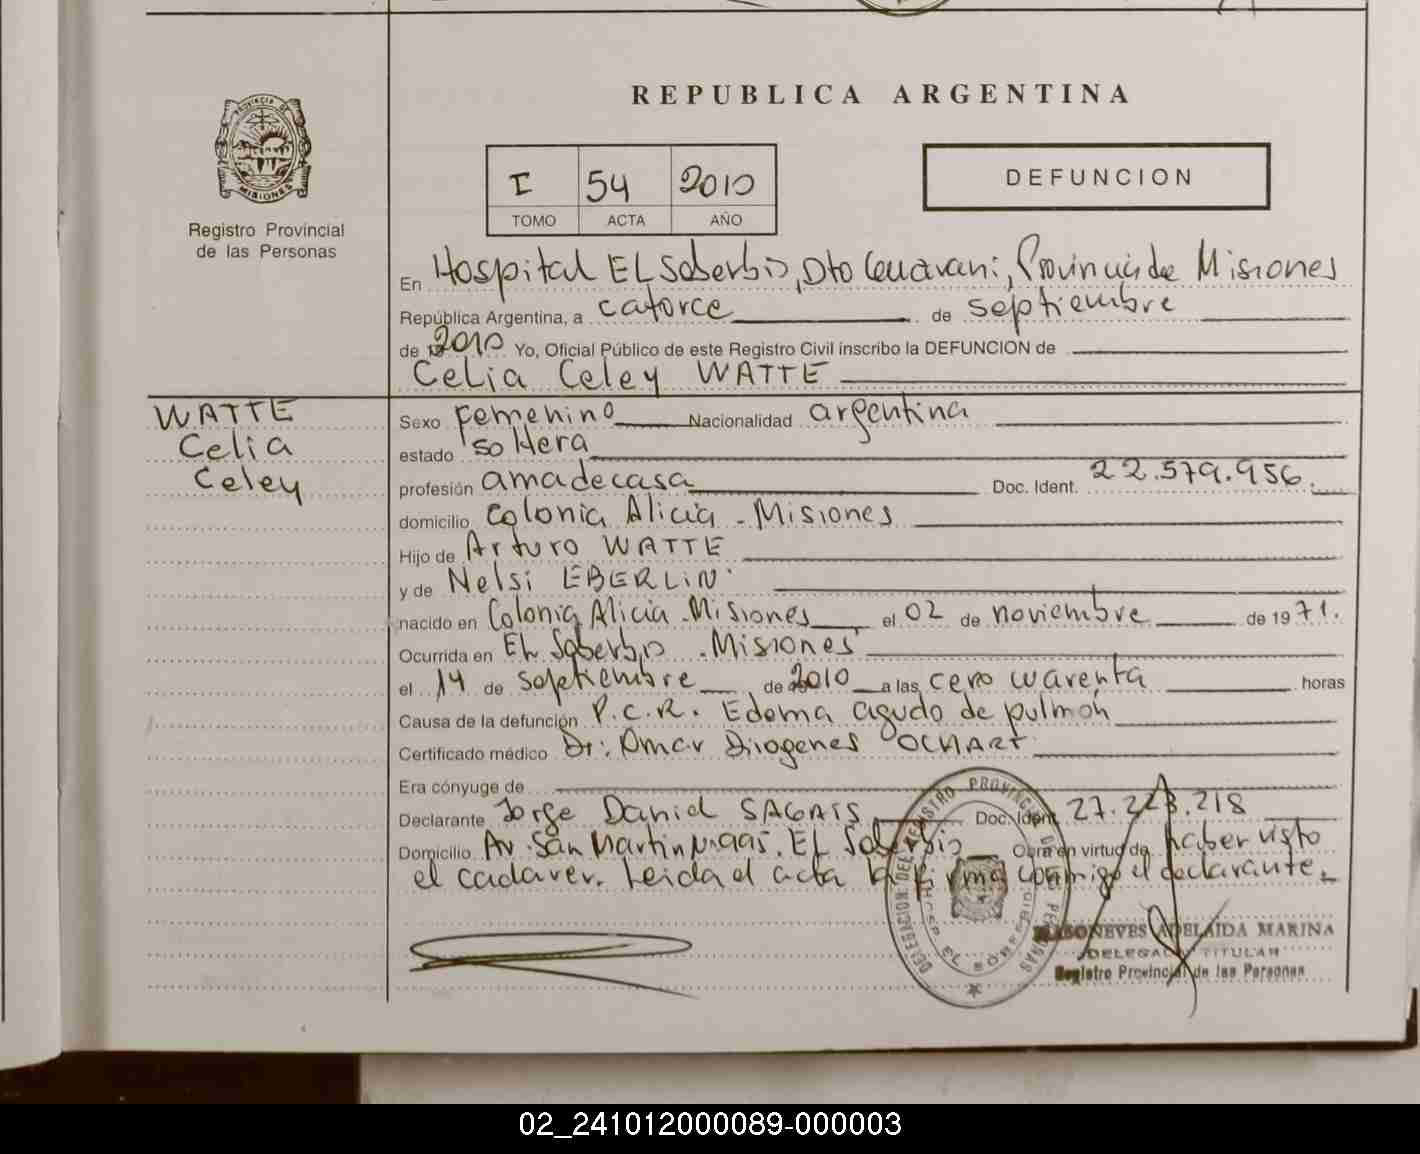 REPUBLICA ARGENTINA
PROVINCIA DE
MISIONES
Registro Provincial
de las Personas
I 54 2010
TOMO ACTA AÑO
DEFUNCION
En Hospital EL Soberbio, Dto Guarani, Provincia de Misiones
República Argentina, a catorce de septiembre
de 2010 Yo, Oficial Público de este Registro Civil inscribo la DEFUNCION de
Celia Celey WATTE
WATTE
Celia
Celey
Sexo femenino Nacionalidad argentina
estado soltera
profesión amadecasa Doc. Ident. 22.579.956.
domicilio Colonia Alicia - Misiones
Hijo de Arturo WATTE
y de Nelsi EBERLIN
nacido en Colonia Alicia - Misiones el 02 de noviembre de 1971.
Ocurrida en EL Soberbio - Misiones
el 14 de septiembre de 2010 a las cero cuarenta horas
Causa de la defunción P.C.R. Edema agudo de pulmón
Certificado médico Dr. Omar Diogenes OCHART
Era cónyuge de
Declarante Jorge Daniel SAGAIS Doc. Ident. 27.223.218
Domicilio Av. San Martin EL Soberbio Obra en virtud de haber visto
el cadaver. Leida el acta la firma conmigo el declarante.
DELEGACION DEL REGISTRO PROVINCIAL DE LAS PERSONAS
HOSP. EL SOBERBIO
ADELAIDA MARINA
DELEGADA TITULAR
Registro Provincial de las Personas
02_241012000089-000003